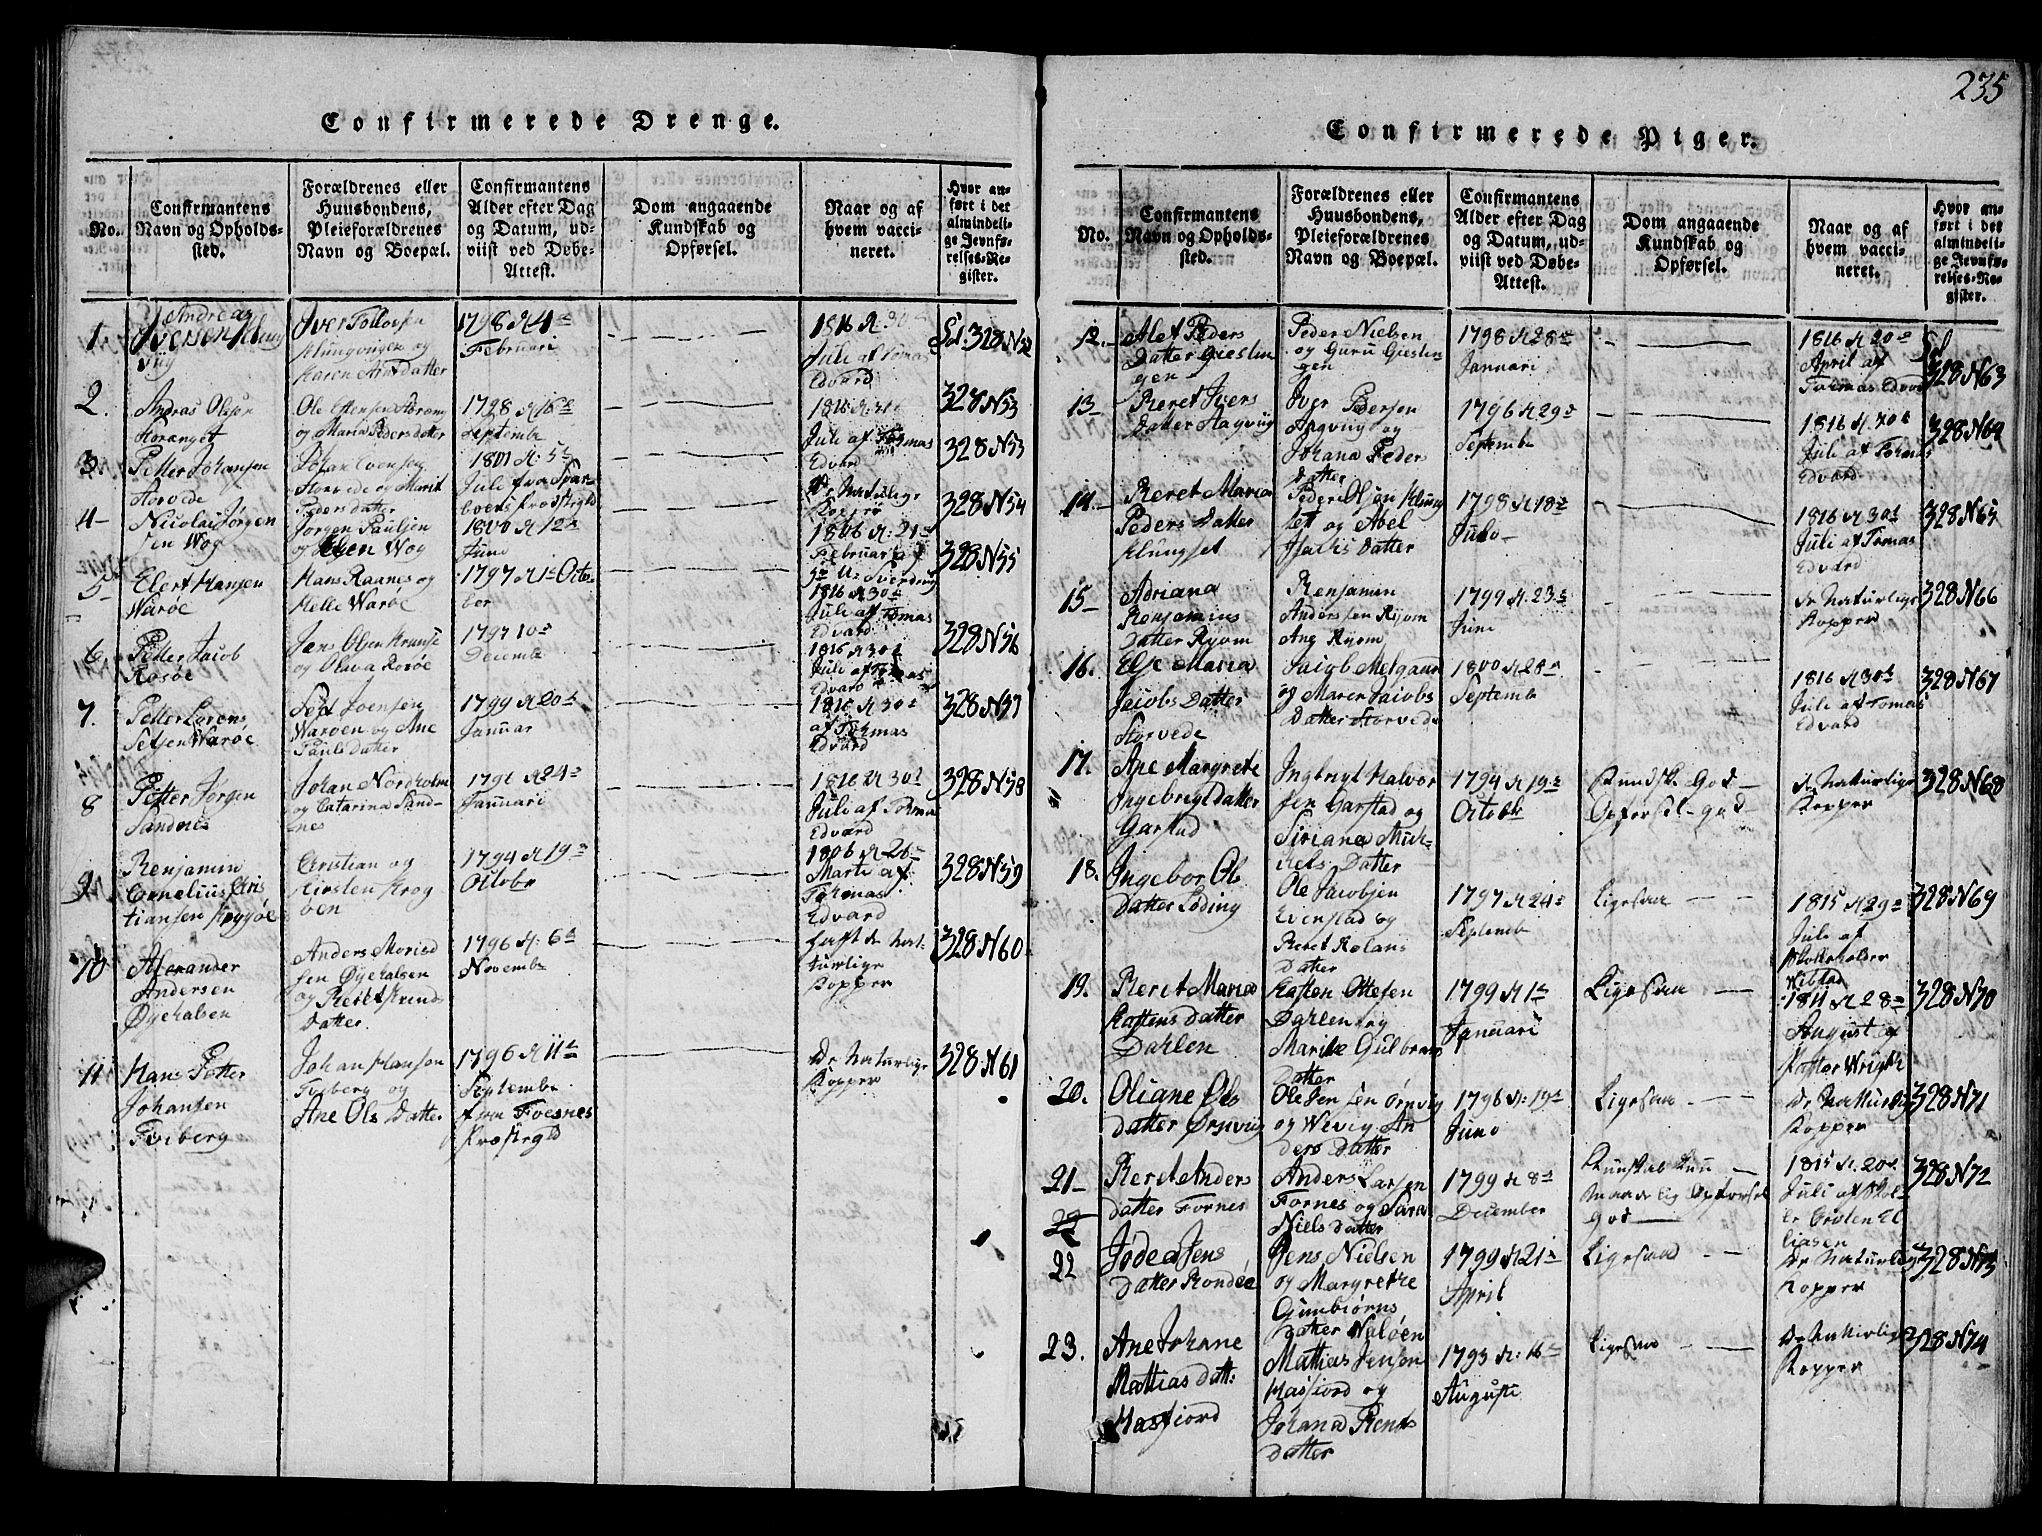 235
Confirmerede Drenge.
No.
Confirmantens
Navn og Opholds-
sted.
Forældrenes eller
Huusbondens,
Pleieforældrenes
Navn og Boepæl.
Confirmantens
Alder efter Dag
og Datum, ud-
viist ved Døbe-
Attest.
Dom angaaende
Kundskab og
Opførsel.
Naar og af
hvem vacci-
neret.
Hvor an-
ført i det
almindeli-
ge Jevnfø-
relses-Re-
gister.
1
Andreas
Iversen
Iver
Klungvigen og
Karen Arnsdatter
1798 d 4de
Februari
1816 d. 30
Juli af Tomas
Edvard
328 N 52
2.
Andras Olsen
Ole
og Maria Pedersdatter
1798 d 16de
Septembe
Juli af Tohmas
Edvard
328 N 53
3
Petter Johansen
Storvede
Johan Evensen
Storvede og Marit
Pedersdatter
1801 d: 5te
Juli fra
328 N 53
de Natulige
4-
Nicolai Jørgen
sen Wog
Jørgen Paulsen
og Elen Wog
1800 d 12te
Juni
1806 d: 21de
Februari af
328 N 54
5-
Elert Hansen
Warøe
Hans Raanes og
Helle Warøe
1797 d 1te Octo-
ber
1816 d 30te
Juli af Tomas
Edvard
328 N 55
6
Petter Jacob
Rosøe
Jens Olsen
og Olava Rosøe
1797 10de
Decembe
1816 d 30te
Juli af Tohmas
Edvard
328 N 56
7.
Petter Lorens
Setsen Warøe
Sest Ivensen
Warøen og Ane
Pauls datter
1799 d 20de
Januar
1816 d 30te
af Tohmas
Edvard
328 N 57
8
Petter Jørgen
Sandnes
Johan Nordholm
og Catarina Sand-
nes
1796 d 24de
Januari
1816 d 30te
Juli af Tohma
Edvard
328 N 58
9
Benjamin
Cornelius Cris
tiansen
Cristian og
Kirsten Krog
øen
1794 d 19de
Octobe
1806 d. 26de
Marti af
Tohmas
Edvard
328 N 59
10
Alexander
Andersen
Øyehalsen
Anders Moried
sen Øyehalsen
og Beret
Datter.
1796 d: 6te
Novembe
haft de Nat-
turlige
Kopper
328 N 60
11
Hans Petter
Johansen
Foiberg
Johan Hanson
Foyberg og
Ane Ols Datter
1796 d 11te
Septembe
fra Foesnes
Præstegield
De Naturlige
Kopper
328 N 61
Confirmerede Piger.
No.
Confirmantens
Navn og Opholds-
sted.
Forældrenes eller
Huusbondens,
Pleieforældrenes
Navn og Boepæl.
Confirmantens
Alder efter Dag
og Datum, ud-
viist ved Døbe-
Attest.
Dom angaaende
Kundskab og
Opførsel.
Naar og af
hvem vacci-
neret.
Hvor an-
ført i det
almindeli-
ge Jevnfø-
relses-Re-
gister.
12.
Alet Peders
Datter Giestin
gen
Peder Nielsen
og Guru Giestin
gen
1798 d 28de
Januari
1816 d 20de
April af
Tohmas Edvard
328 N 63
13
Beret Ivers
Datter Aagvug
Iver Pedersen
Aagvug og
Johana Peder
datter
1796 d 29de
Septembe
1816 d. 30te
Juli af Tohmas
Edvard
328 N 64
14.
Beret Maria
Peders Datter
Klungset
Peder Olsen Klung
set og Abel
Isachs Datter
1798 d 18de
Julo
1816 d 30te
Juli af Tomas
Edvard
328 N 65
15
Adriana
Benjamins
Datter Ryom
Benjamin
Anderssen Ryom
Ane Ryom
1799 d. 23de
Juni
de Naturlige
Kopper
328 N 66
16.
Else Maria
Jacobs Datter
Storvede
Jacob Melgaar
og Maren Jacobs
Datter Storvede
1800 d 28de
Septemb
1816 d 30te
Juli af Tomas
Edvard
328 N 67
17.
Ane Margrete
Ingebrigt Datter
Garstad
Ingbrigt Halvor
sen Garstad og
Siriana Mick-
kels Datter
1794 d 19de
Octobe
Kundsk: God
Opførsel god
de Naturlige
Kopper
328 N 68
18.
Ingebor Ols
Datter Løding
Ole Jacobsen
Evenstad og
Beret Rolans
Datter
1797 d 24de
Septemb
Ligesaa
1815 d 29de
Juli af
Skoleholder
Wilstad
328 N 69
19.
Beret Maria
Kastens datter
Dahlen
Kasten Ottesen
Dahlen og
Marite Gulbrans
Datter
1799 d 1te
Januari
Ligesaa
1811 d 28de
August af
328 N 70
20.
Oliane Ols
datter Ørnvig
Ole Jensen Ørnvig
og Wivig An
ders Datter
1796 d: 19de
Juno
Ligesaa
De Natturlige
Kopper
328 N 71
21
Beret Anders
datter Fornes
Anders Larsen
Fornes og Sara
Niels datter
1799 d 8de
December
Kunskab kuu
maadelig Opførsel
god
1815 d. 20de
Juli af Skol-
liasen
328 N 72
22
22
Jens
datter Rondøe
Jens Nielsen
og Margrethe
Gunbiørns
datter Waløen
1799 d 21de
April
Ligesaa
De Naturlige
Kopper
328 N 73
23.
Ane Johane
Mattias datt:
Hasfiord
Mattias Jenson
Hasfiord og
Johana Bents
datter
1793 d: 16de
Augusti
Ligesaa
De Naturlige
Kopper
328 N 74